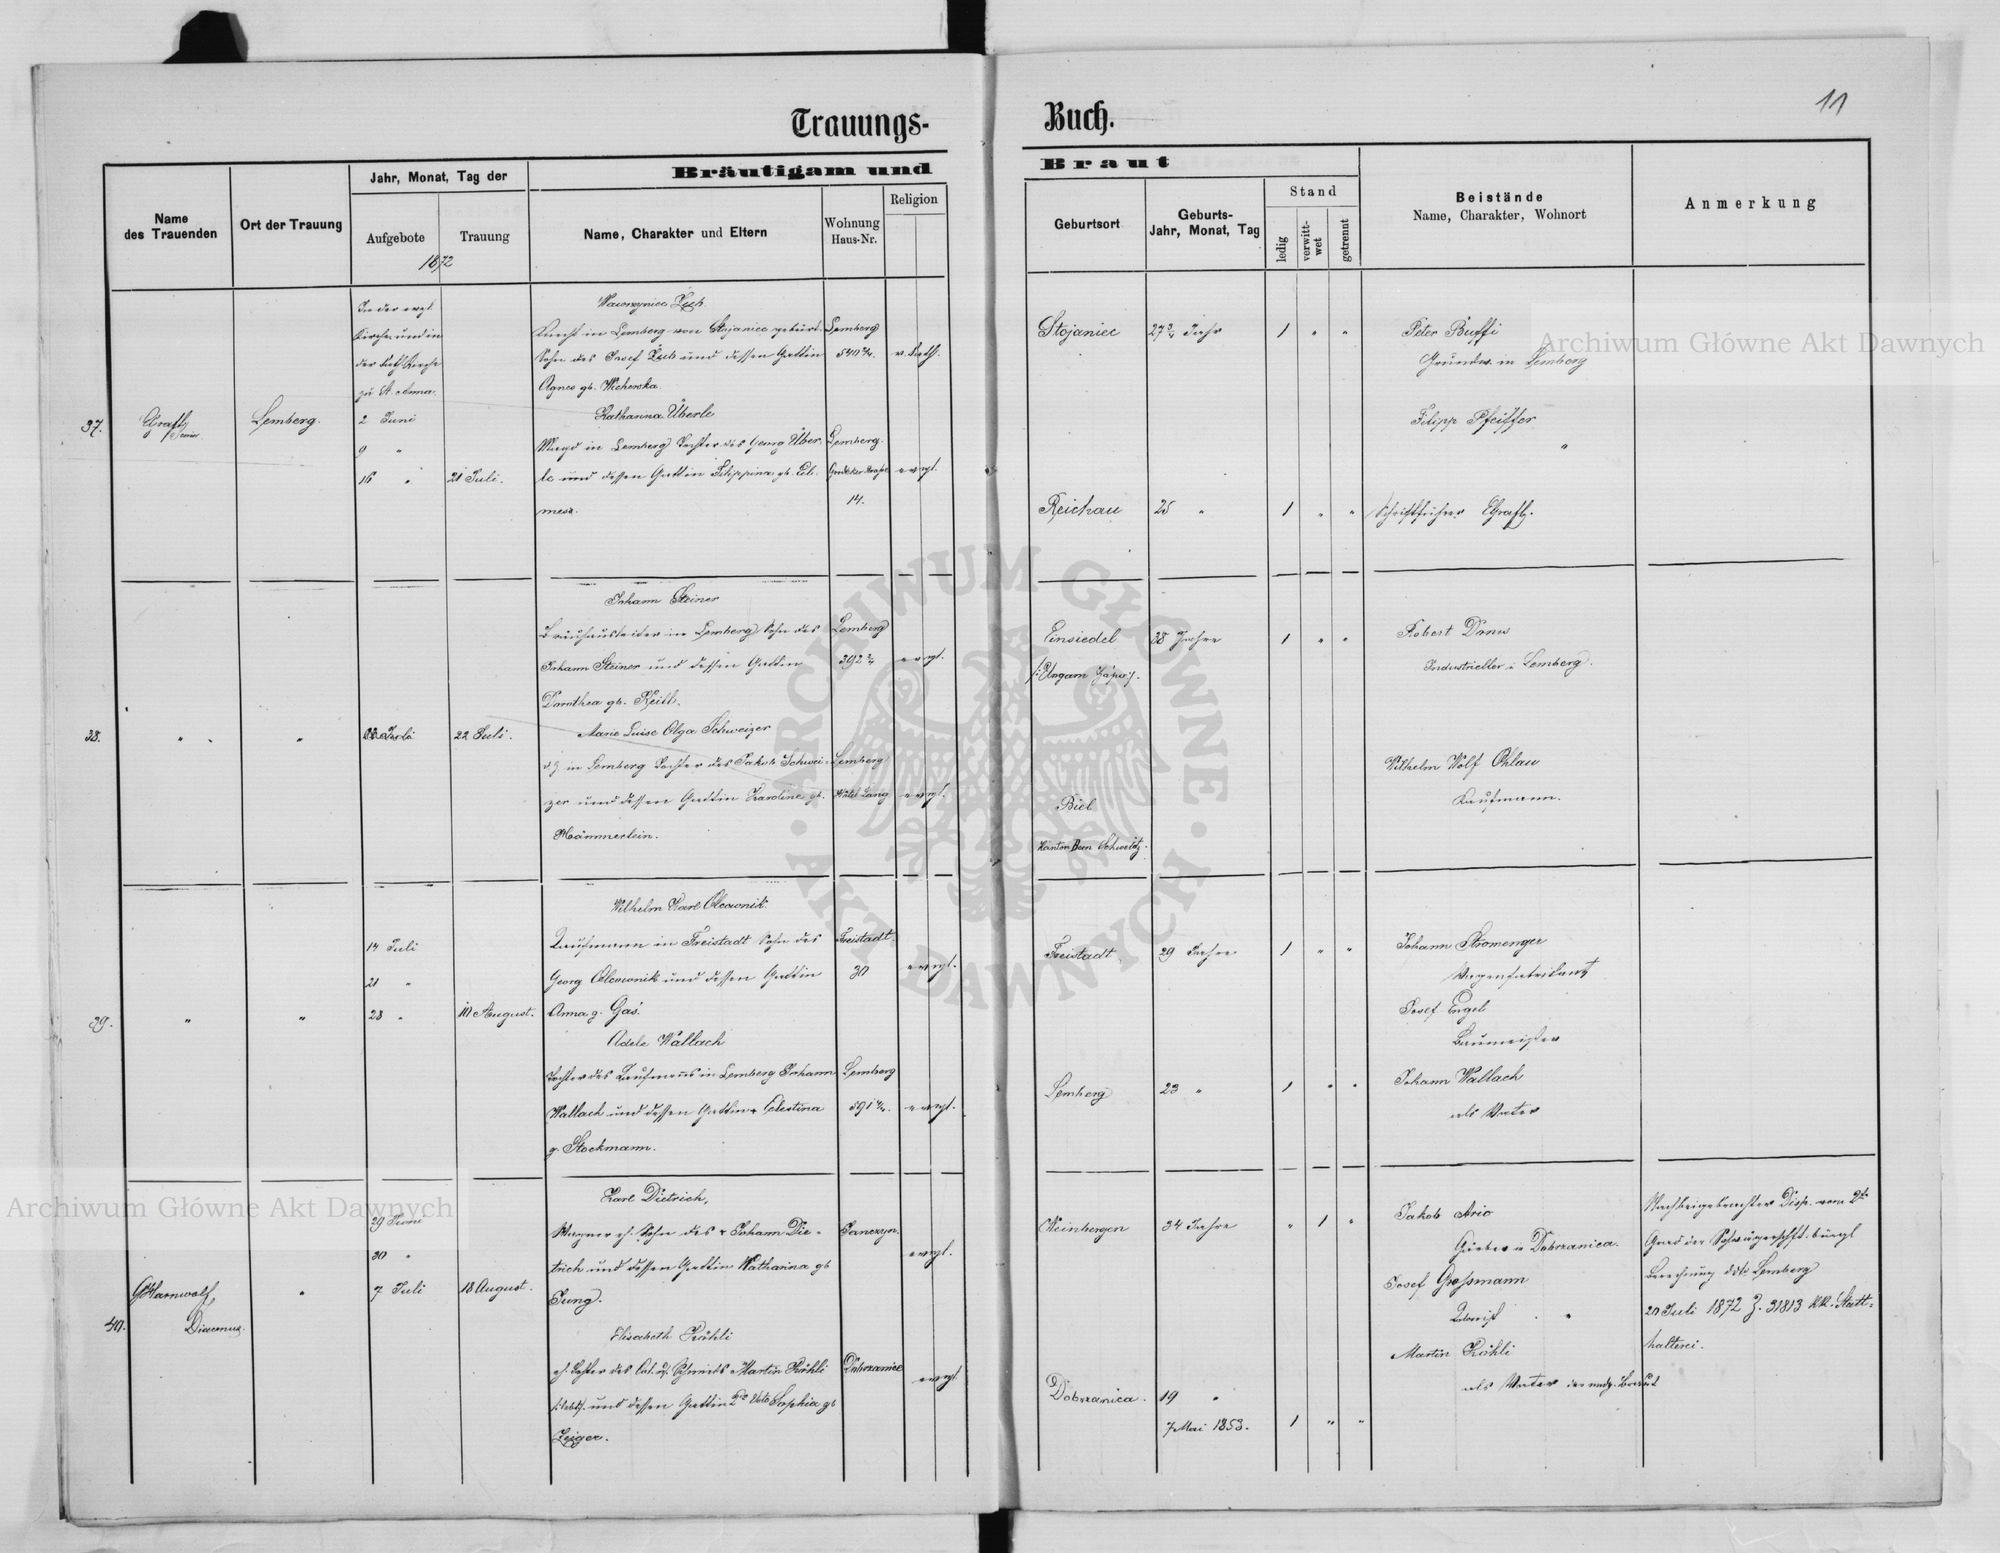 11
Trauungs-Buch.
Bräutigam und Braut
Name des Trauenden
Ort der Trauung
Jahr, Monat, Tag der
Aufgebote
Trauung
1872
Name, Charakter und Eltern
Wohnung Haus-Nr.
Religion
Geburtsort
Geburts-Jahr, Monat, Tag
Stand
ledig
verwitt-wet
getrennt
Beistände
Name, Charakter, Wohnort
Anmerkung
37.
Grafl
Senior
Lemberg.
In der evgl
Kirche und in
der kath Kirche
zu St. Anna.
2 Juni
9 "
16 "
21 Juli.
Wawrzyniec
Knecht in Lemberg von Stojaniec gebürt.
Sohn des Josef und dessen Gattin
Agnes gb.
Lemberg
540 2/4.
r. kath.
Stojaniec
27 3/4 Jahr
1 " "
Peter Buffi
in Lemberg
Katharina Überle
Magd in Lemberg Tochter des Georg Über
le und dessen Gattin Filippina gb.
Lemberg.
14.
evgl.
Reichau
25 "
1 " "
Filipp Pfeiffer
"
Schriftführer Grafl.
38.
" "
"
Juli
22 Juli.
Johann Steiner
in Lemberg Sohn des
Johann Steiner und dessen Gattin
Dorothea gb.
Lemberg
392 2/4
evgl.
Einsiedel
/: Ungarn
38 Jahre
1 " "
Robert
Industrieller in Lemberg.
Marie Luise Olga Schweizer
in Lemberg Tochter des Jakob Schwei-
zer und dessen Gattin Karoline gb.
Männerlein.
Lemberg
Hotel Lang
evgl.
Biel
Kanton Bern Schweitz.
Wilhelm Wolf
Kaufmann.
39.
"
"
14 Juli
21 "
28 "
10 August.
Wilhelm Karl Olcownik
Kaufmann in Freistadt Sohn des
Georg Olcownik und dessen Gattin
Anna g. Gas.
Freistadt.
30
evgl.
Freistadt
29 Jahre
1 " "
Johann Stromenger
Wagenfabrikant
Josef Engel
Baumeister
Adele Wallach
Tochter des Kaufmanns in Lemberg Johann
Wallach und dessen Gattin Celestina
g. Stockmann.
Lemberg
591 4/4.
evgl.
Lemberg
23 "
1 " "
Johann Wallach
als Vater
40.
Harnwolf,
Diaconus.
"
29 Juni
30 "
7 Juli
18 August.
Karl Dietrich,
Wagner eh. Sohn des + Johann Die-
trich und dessen Gattin Katharina gb
Jung.
Janczyn.
evgl.
Weinbergen
34 Jahre
" 1 "
Jakob
in Dobrzanica.
Josef Grossmann
"
Nachbeigebrachter Disp. vom 2te
Grad der Schwägerschft. bürgl
Berechnung ddo Lemberg
20 Juli 1872 Z. 31813 kk. Statt-
halterei.
Elisabeth Kähli
eh. Tochter des Schmieds Martin Kähli
und dessen Gattin Sophia gb
Zeiger.
Dobrzanica
evgl
Dobrzanica.
19 "
7 Mai 1853.
1 " "
Martin Kähli
als Vater der Braut
Archiwum Główne Akt Dawnych
Archiwum Główne Akt Dawnych
ARCHIWUM GŁÓWNE · AKT DAWNYCH ·